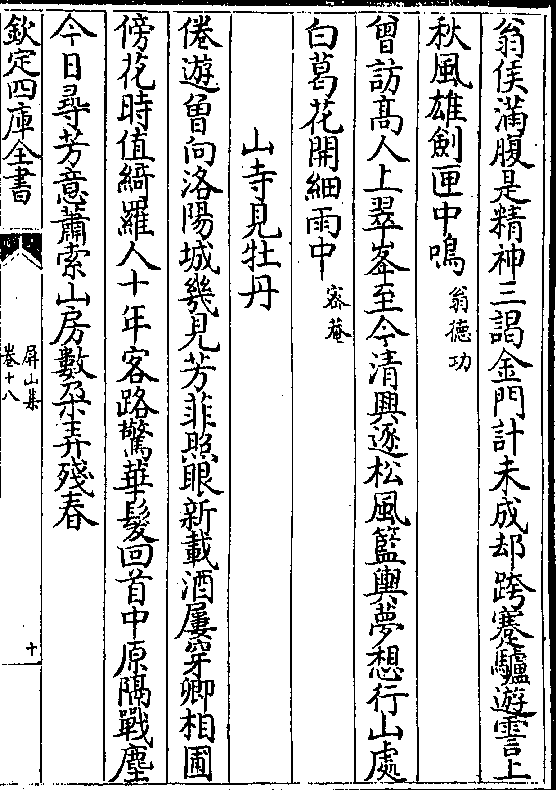 翁侯滿腹是精神三謁金門計未成却跨蹇驢遊霅上
秋風雄劍匣中鳴 翁德功
曾訪髙人上翠峯至今清興逐松風籃輿夢想行山處
白葛花開細雨中 宻菴
山寺見牡丹
倦遊曽向洛陽城幾見芳菲照眼新載酒屢穿卿相圃
傍花時值綺羅人十年客路驚華髪回首中原隔戰塵
今日尋芳意蕭索山房數朶弄殘春
欽定四庫全書
屏山集
卷十八
十